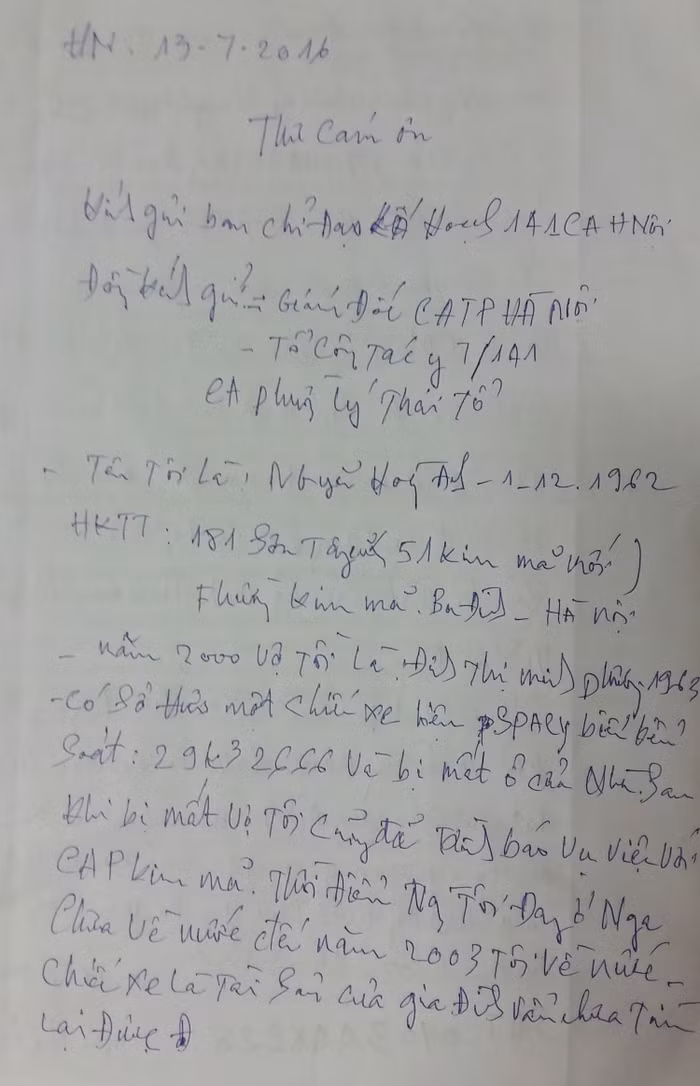 HN. 13-7-2016
Thư Cảm ơn
Kính gửi ban chỉ Đạo Kế Hoạch 141 CA HNội
Đồng kính gửi: Giám Đốc CATP HÀ NỘI
- Tổ Công Tác y 7/141
CA phường Lý Thái Tổ
- Tên Tôi Là: Nguyễn Hoàng - 1-12.1962
HKTT: 181 Sơn Tây 51 Kim mã )
Phường Kim mã. Ba Đình - Hà nội
- năm 2000 Vợ Tôi Là Đinh Thị minh 1963
- Có Sở Hữu một chiếc xe hiệu SPACy biển
Soát: 29k3 2666 Và bị mất ở cửa Nhà. Sau
Khi bị mất Vợ Tôi Cũng đã Trình báo Vụ Việc Với
CAP Kim mã. Thời điểm Tôi Đang ở Nga
Chưa Về nước đến năm 2003 Tôi Về nước
Chiếc xe Là Tài Sản của gia Đình Vẫn chưa Tìm
Lại Được